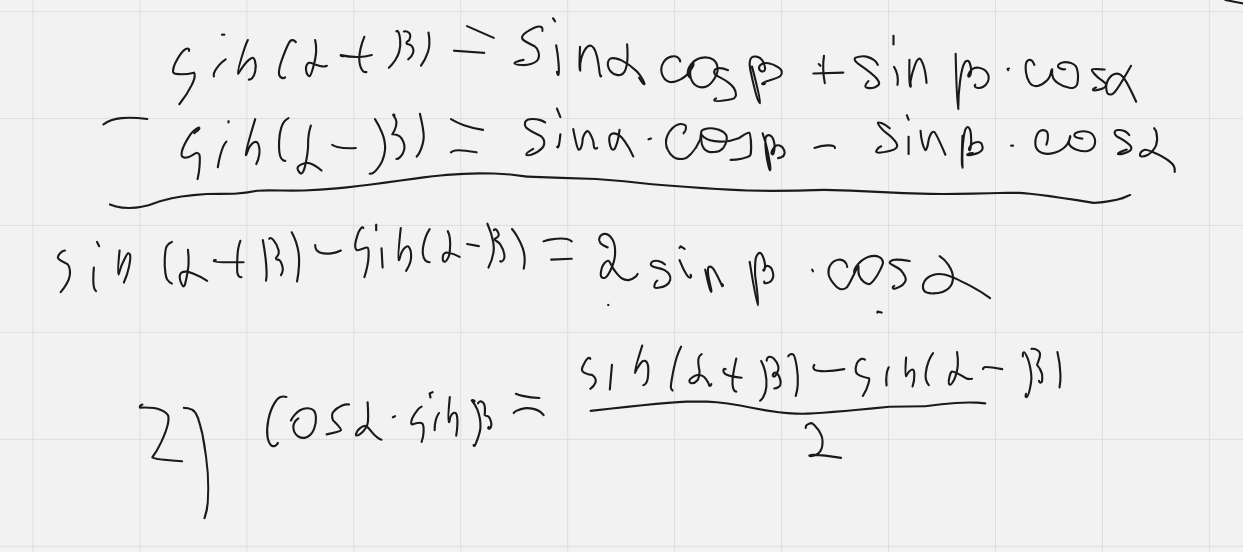 sin(α+β) = sinα cosβ + sinβ·cosα
− sin(α−β) = sinα·cosβ − sinβ·cosα
sin(α+β) − sin(α−β) = 2 sinβ·cosα
2) cosα·sinβ = (sin(α+β) − sin(α−β)) / 2